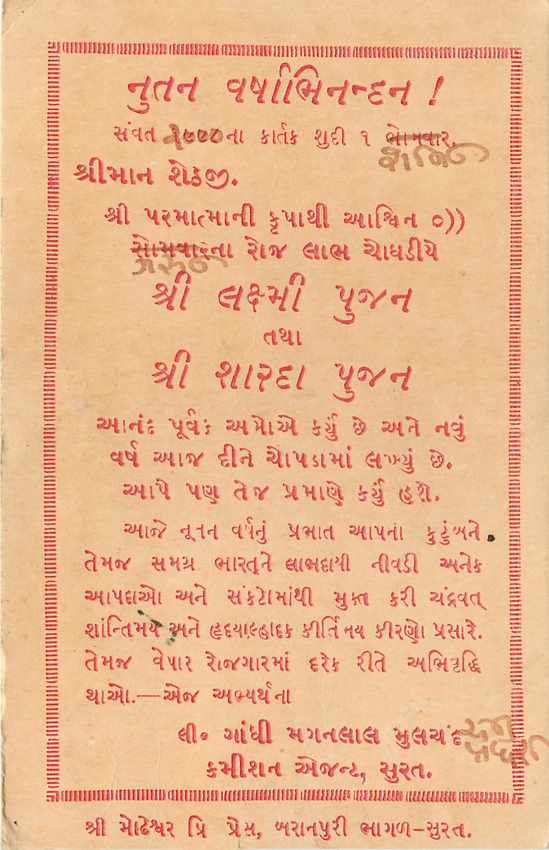 નુતન વર્ષાભિનન્દન !
સંવત ના કાર્તક શુદી ૧ સોમવાર.
શનિ
શ્રીમાન શેઠજી.
શ્રી પરમાત્માની કૃપાથી આશ્વિન ૦))
સોમવારના રોજ લાભ ચોઘડીયે
શ્રી લક્ષ્મી પુજન
તથા
શ્રી શારદા પુજન
આનંદ પૂર્વક અમોએ કર્યું છે અને નવું
વર્ષ આજ દીને ચોપડામાં લખ્યું છે.
આપે પણ તેજ પ્રમાણે કર્યું હશે.
આજે નૂતન વર્ષનું પ્રભાત આપના કુટુંબને
તેમજ સમગ્ર ભારતને લાભદાયી નીવડી અનેક
આપદાઓ અને સંકટોમાંથી મુક્ત કરી ચંદ્રવત્
શાંન્તિમય અને હૃદયાલ્હાદક કીર્તિમય કીરણો પ્રસારે.
તેમજ વેપાર રોજગારમાં દરેક રીતે અભિવૃદ્ધિ
થાઓ.—એજ અભ્યર્થના
લી૦ ગાંધી મગનલાલ મુલચંદ
કમીશન એજન્ટ, સુરત.
શ્રી મોઢેશ્વર પ્રિ પ્રેસ, બરાનપુરી ભાગળ-સુરત.